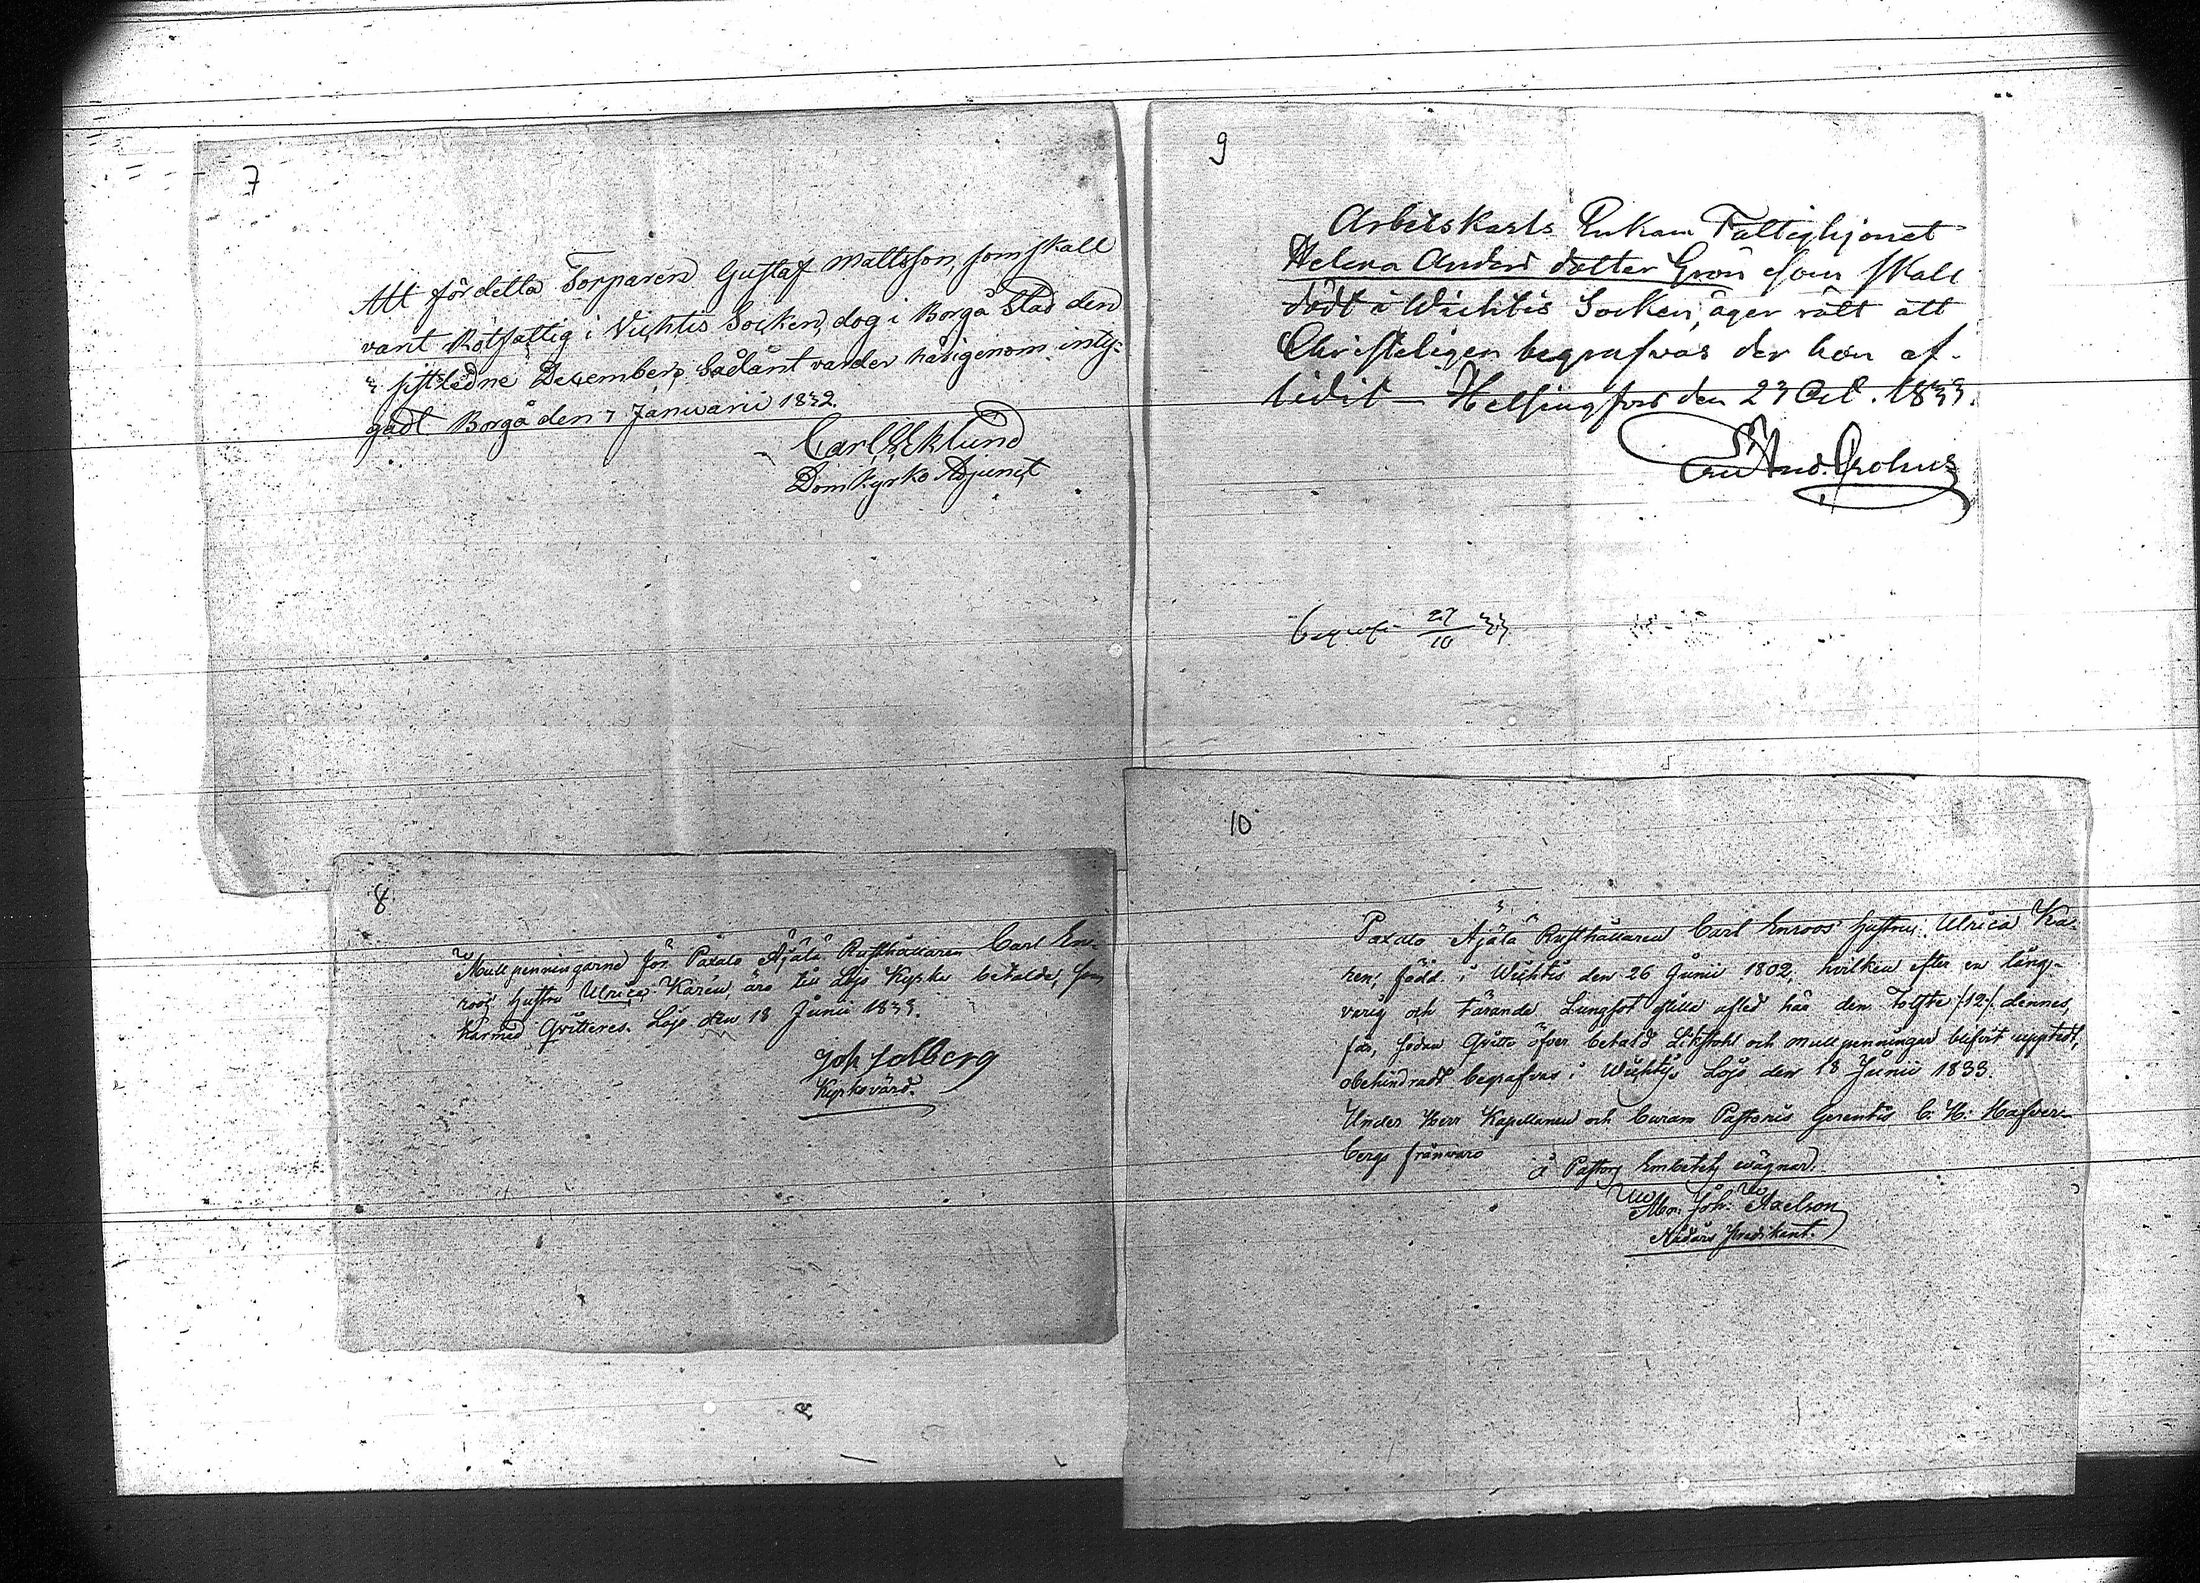 7
Att för detta Torparen Gustaf Mattsson, som skall
varit Rotfattig i Vichtis Socken, dog i Borgå Stad den
3 sistledne December, Sådant varder härigenom inty-
gadt Borgå den 7 Januarii 1832.
Carl Eklund
Domkyrko Adjunct
8
Mullpenningarne för Paxalo Äjälä Rusthållaren Carl En-
roos hustru Ulrica Karén, äro till Lojo Kyrka betalde, som
härmed Qvitteres. Lojo den 18 Junii 1833.
Joh Solberg
Kyrkovärd.
9
Arbetskarls Enkan Fattighjonet
Helena Anders dotter Grön som skall
dödt i Wichtis Socken, äger rätt att
Christeligen begrafvas der hon af-
lidit — Helsingfors den 23 Oct. 1833.
And. Crohns
begrafn 27/10 33.
10
Paxalo Äjälä Rusthållaren Carl Enroos' hustru Ulrica Ka-
ren, född i Wichtis den 26 Junii 1802, hvilken efter en lång-
varig och tärande Lungsot stilla afled här den Tolfte /12/ dennes,
får, sedan Qvitto öfver betald Likstohl och mullpenningar blifvit uppteedt,
obehindradt begrafvas i Wichtis. Lojo den 18 Junii 1833.
Under Herr Kapellanen och Curam Pastoris Gerentis C. H. Hafver-
bergs frånvaro
å Pastors Embetets wägnar.
Joh. Axelson
Nådårs Predikant.